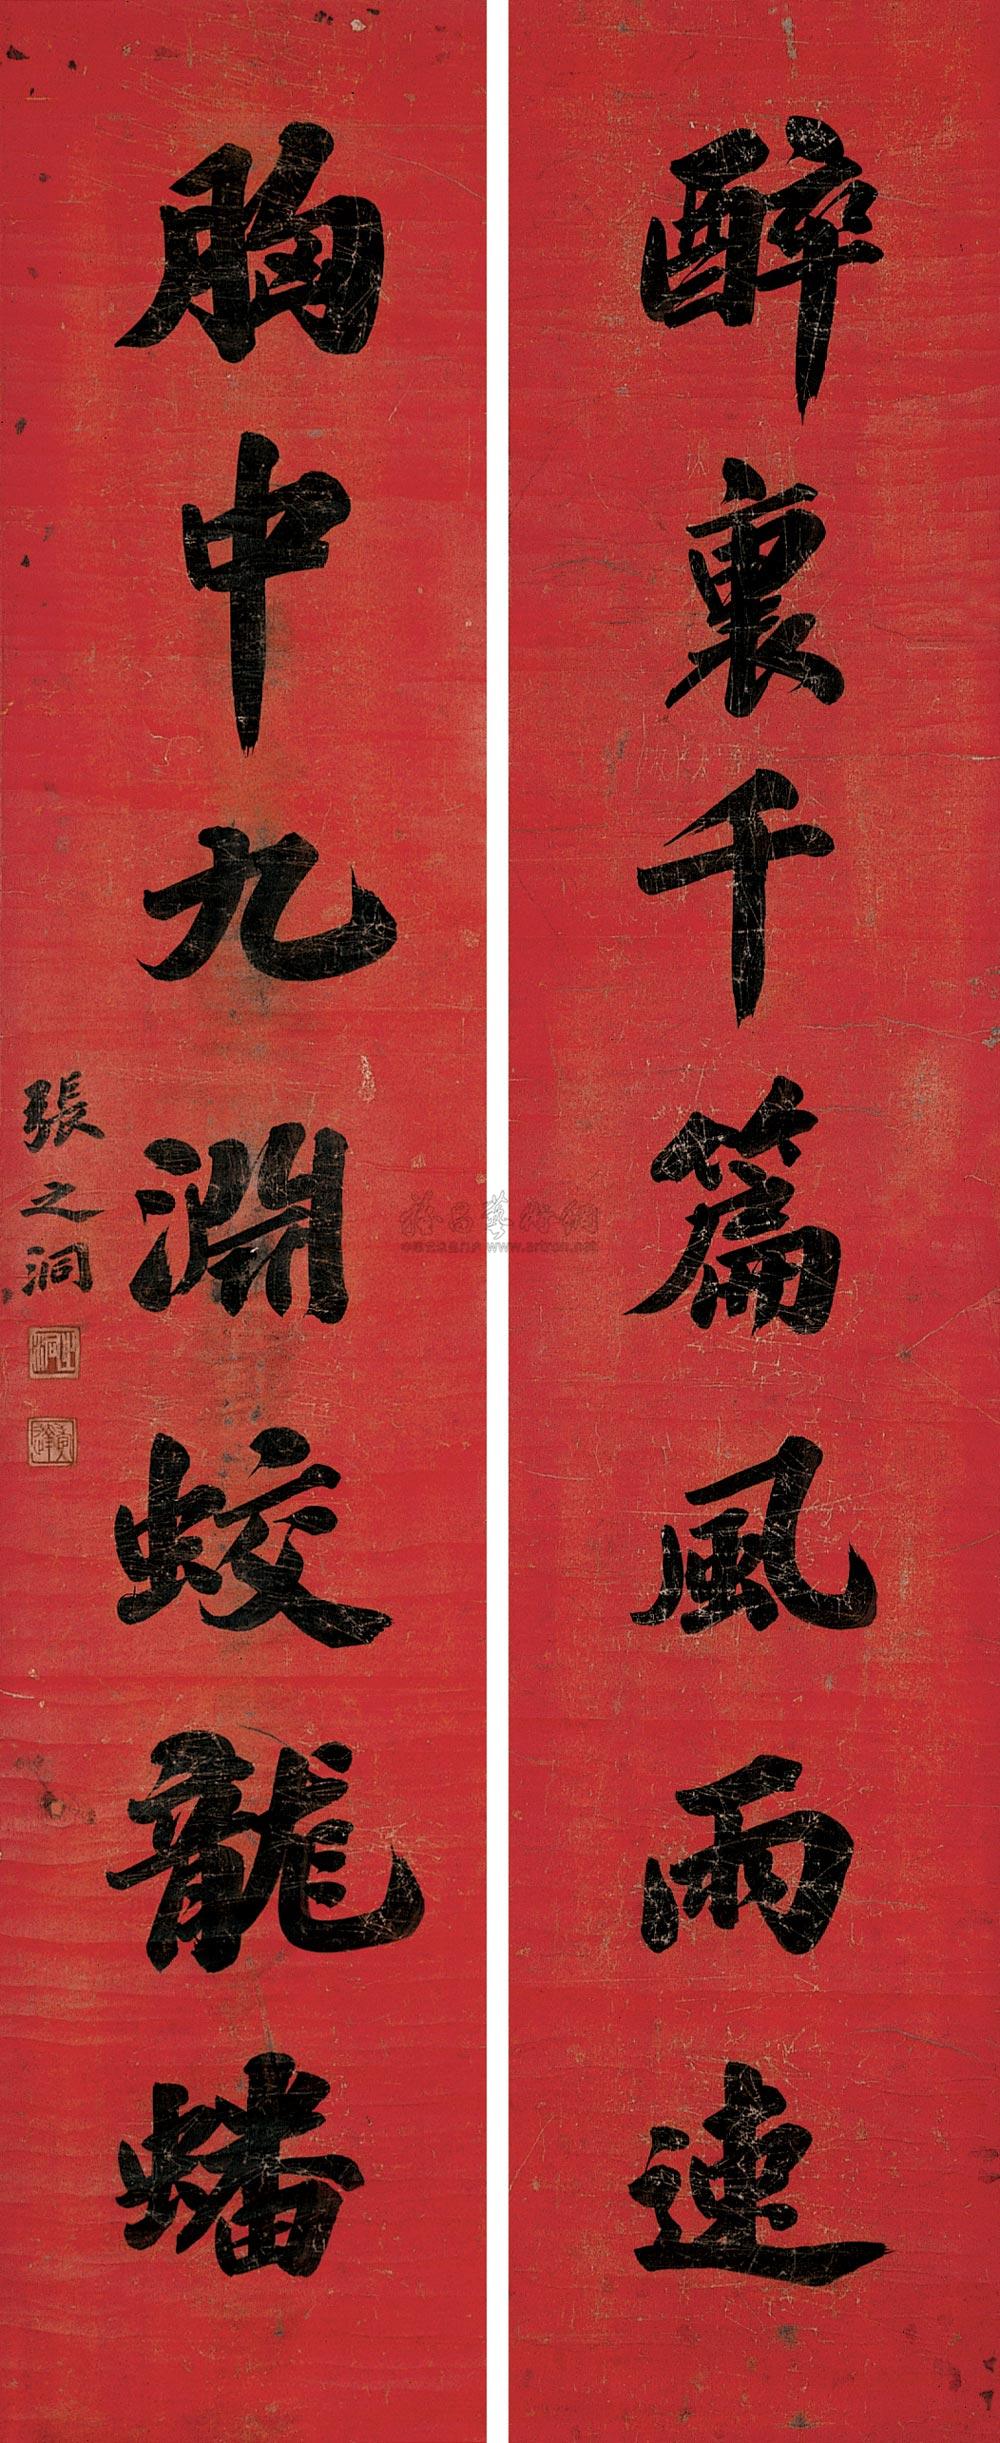 醉裏千篇風雨速
胸中九淵蛟龍蟠
張之洞
之洞
雅昌藝術網
www.artron.net